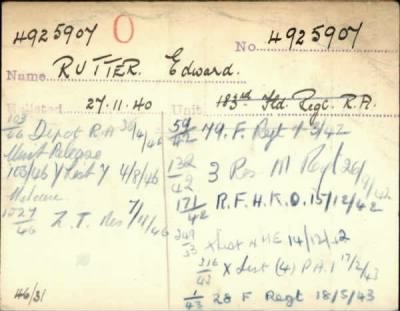 4925907 O No. 4925907
Name RUTTER. Edward.
Enlisted 27.11.40 Unit 183rd Fld. Regt. R.A.
103/46 Depot R.A 30/4/46
Unit Release
103/46 Y List 7 4/8/46
46
Z. T. Res 7/11/46
46/31
59/42 79. F. Regt 1/3/42
132/42 3 Res M Regt
171/42 R.F.H.K.O. 15/12/42
X List ME 14/12/42
216/42 X List (4) P.A. 1 17/2/43
1/43 28 F Regt 18/5/43